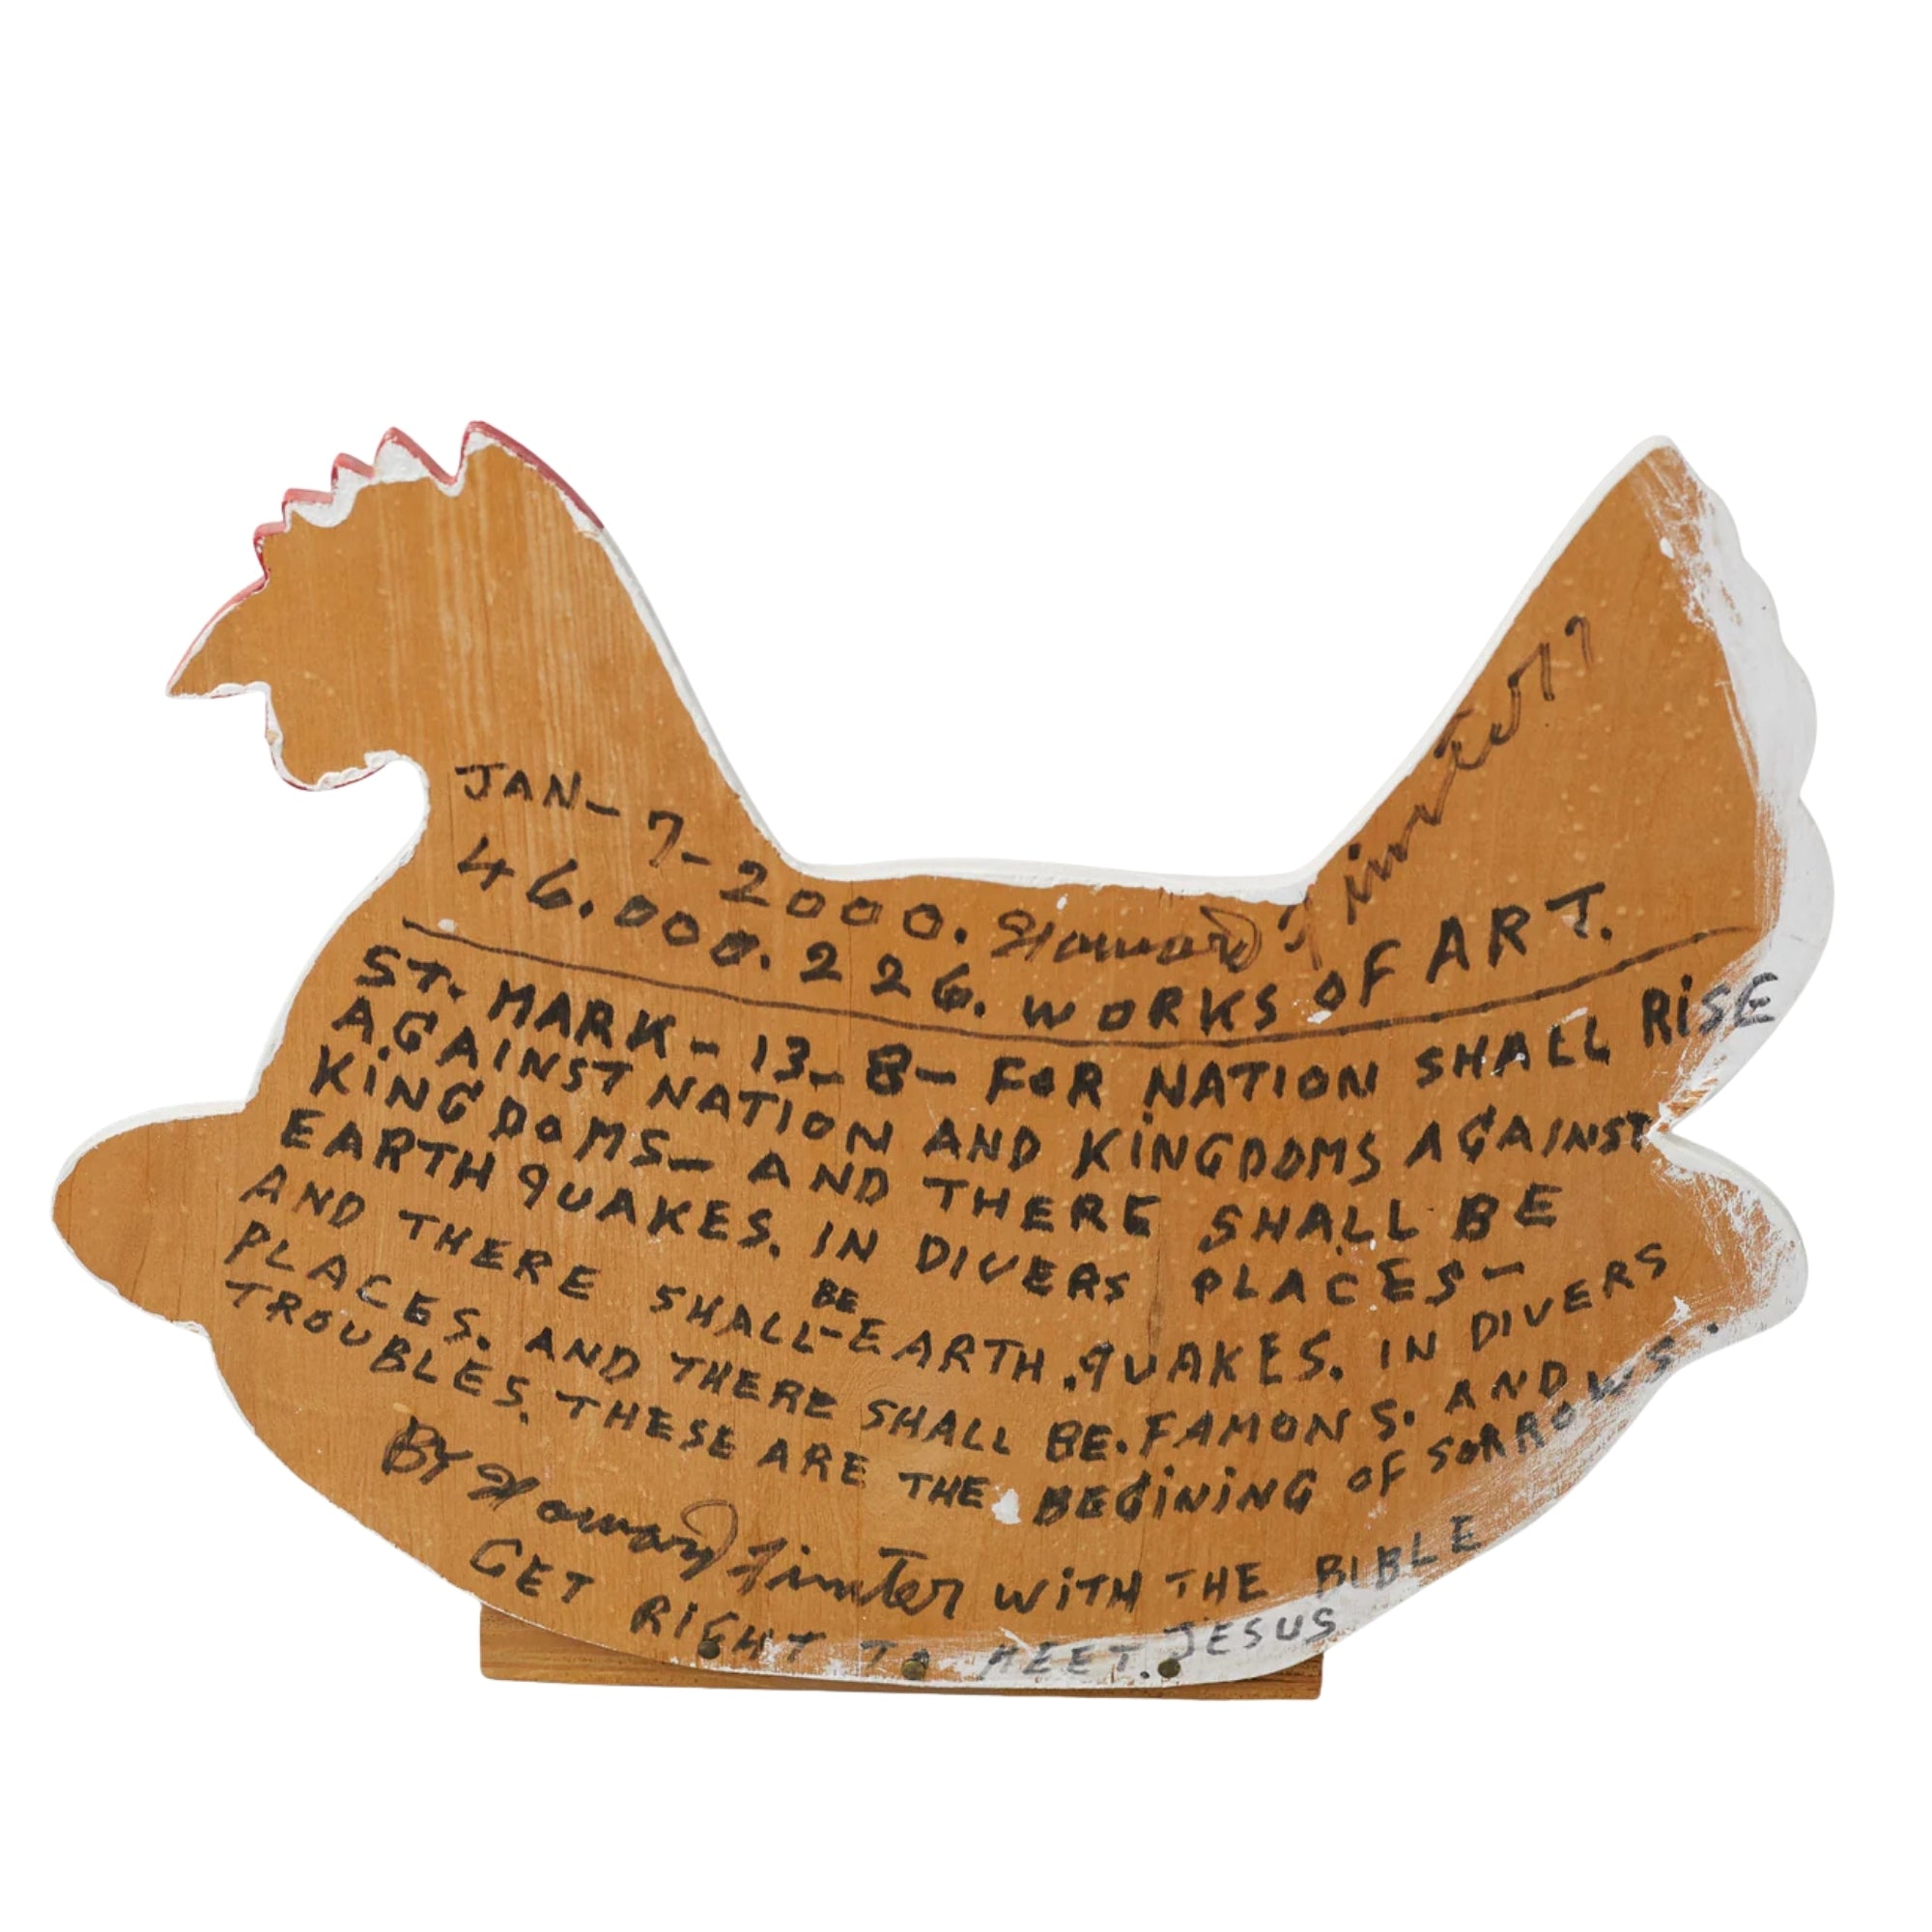 JAN-7-2000. Howard Finster
46.000.226. WORKS OF ART.
ST. MARK-13-8- FOR NATION SHALL RISE
AGAINST NATION AND KINGDOMS AGAINST
KINGDOMS- AND THERE SHALL BE
EARTH QUAKES. IN DIVERS PLACES-
AND THERE SHALL-BE EARTH.QUAKES. IN DIVERS
PLACES. AND THERE SHALL BE. FAMONS. AND
TROUBLES. THESE ARE THE BEGINING OF SORROWS.
BY Howard Finster WITH THE BIBLE
GET RIGHT TO MEET. JESUS